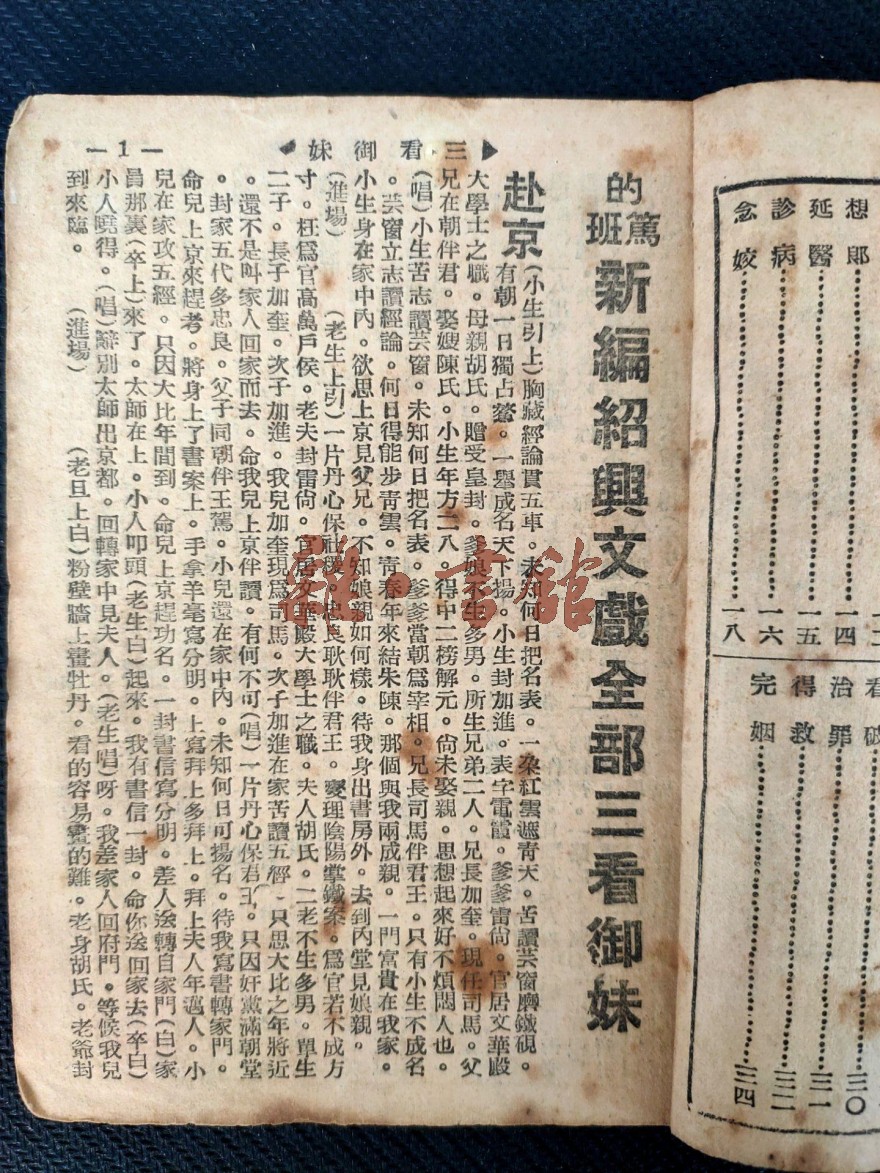 想郎⋯⋯一四
延醫⋯⋯一五
診病⋯⋯一六
念姣⋯⋯一八
看破⋯⋯三〇
治罪⋯⋯三一
得救⋯⋯三二
完姻⋯⋯三四
三看御妹
—1—
的篤班
新編紹興文戲全部三看御妹
赴京
(小生引上)胸藏經論貫五車。未知何日把名表。一朶紅雲遮青天。苦讀芸窗磨鐵硯。
有朝一日獨占鰲。一舉成名天下揚。小生封加進。表字電霞。爹爹雷尙。官居文華殿
大學士之職。母親胡氏。贈受皇封。爹娘不生多男。所生兄弟二人。兄長加奎。現任司馬。父
兄在朝伴君。娶嫂陳氏。小生年方二八。得中二榜解元。尙未娶親。思想起來好不煩悶人也。
(唱)小生苦志讀芸窗。未知何日把名表。爹爹當朝爲宰相。兄長司馬伴君王。只有小生不成名
。芸窗立志讀經論。何日得能步靑雲。靑春年來結朱陳。那個與我兩成親。一門富貴在我家。
小生身在家中內。欲思上京見父兄。不知娘親如何樣。待我身出書房外。去到內堂見娘親。
(進場)(老生上引)一片丹心保社稷。忠良耿耿伴君王。變理陰陽掌鐵案。爲官若不成方
寸。枉爲官高萬戶侯。老夫封雷尙。官居文華殿大學士之職。夫人胡氏。二老不生多男。單生
二子。長子加奎。次子加進。我兒加奎現爲司馬。次子加進在家苦讀五經。只思大比之年將近
。還不是叫家人回家而去。命我兒上京伴讀。有何不可(唱)一片丹心保君王。只因奸黨滿朝堂
。封家五代多忠良。父子同朝伴王駕。小兒還在家中內。未知何日可揚名。待我寫書轉家門。
命兒上京來趕考。將身上了書案上。手拿羊毫寫分明。上寫拜上多拜上。拜上夫人年邁人。小
兒在家攻五經。只因大比年間到。命兒上京趕功名。一封書信寫分明。差人送轉自家門(白)家
員那裏(卒上)來了。太師在上。小人叩頭(老生白)起來。我有書信一封。命你送回家去(卒白)
小人曉得。(唱)辭別太師出京都。回轉家中見夫人。(老生唱)呀。我差家人回府門。等候我兒
到來臨。(進場)(老旦上白)粉壁牆上畫牡丹。看的容易畫的難。老身胡氏。老爺封
雜·書館